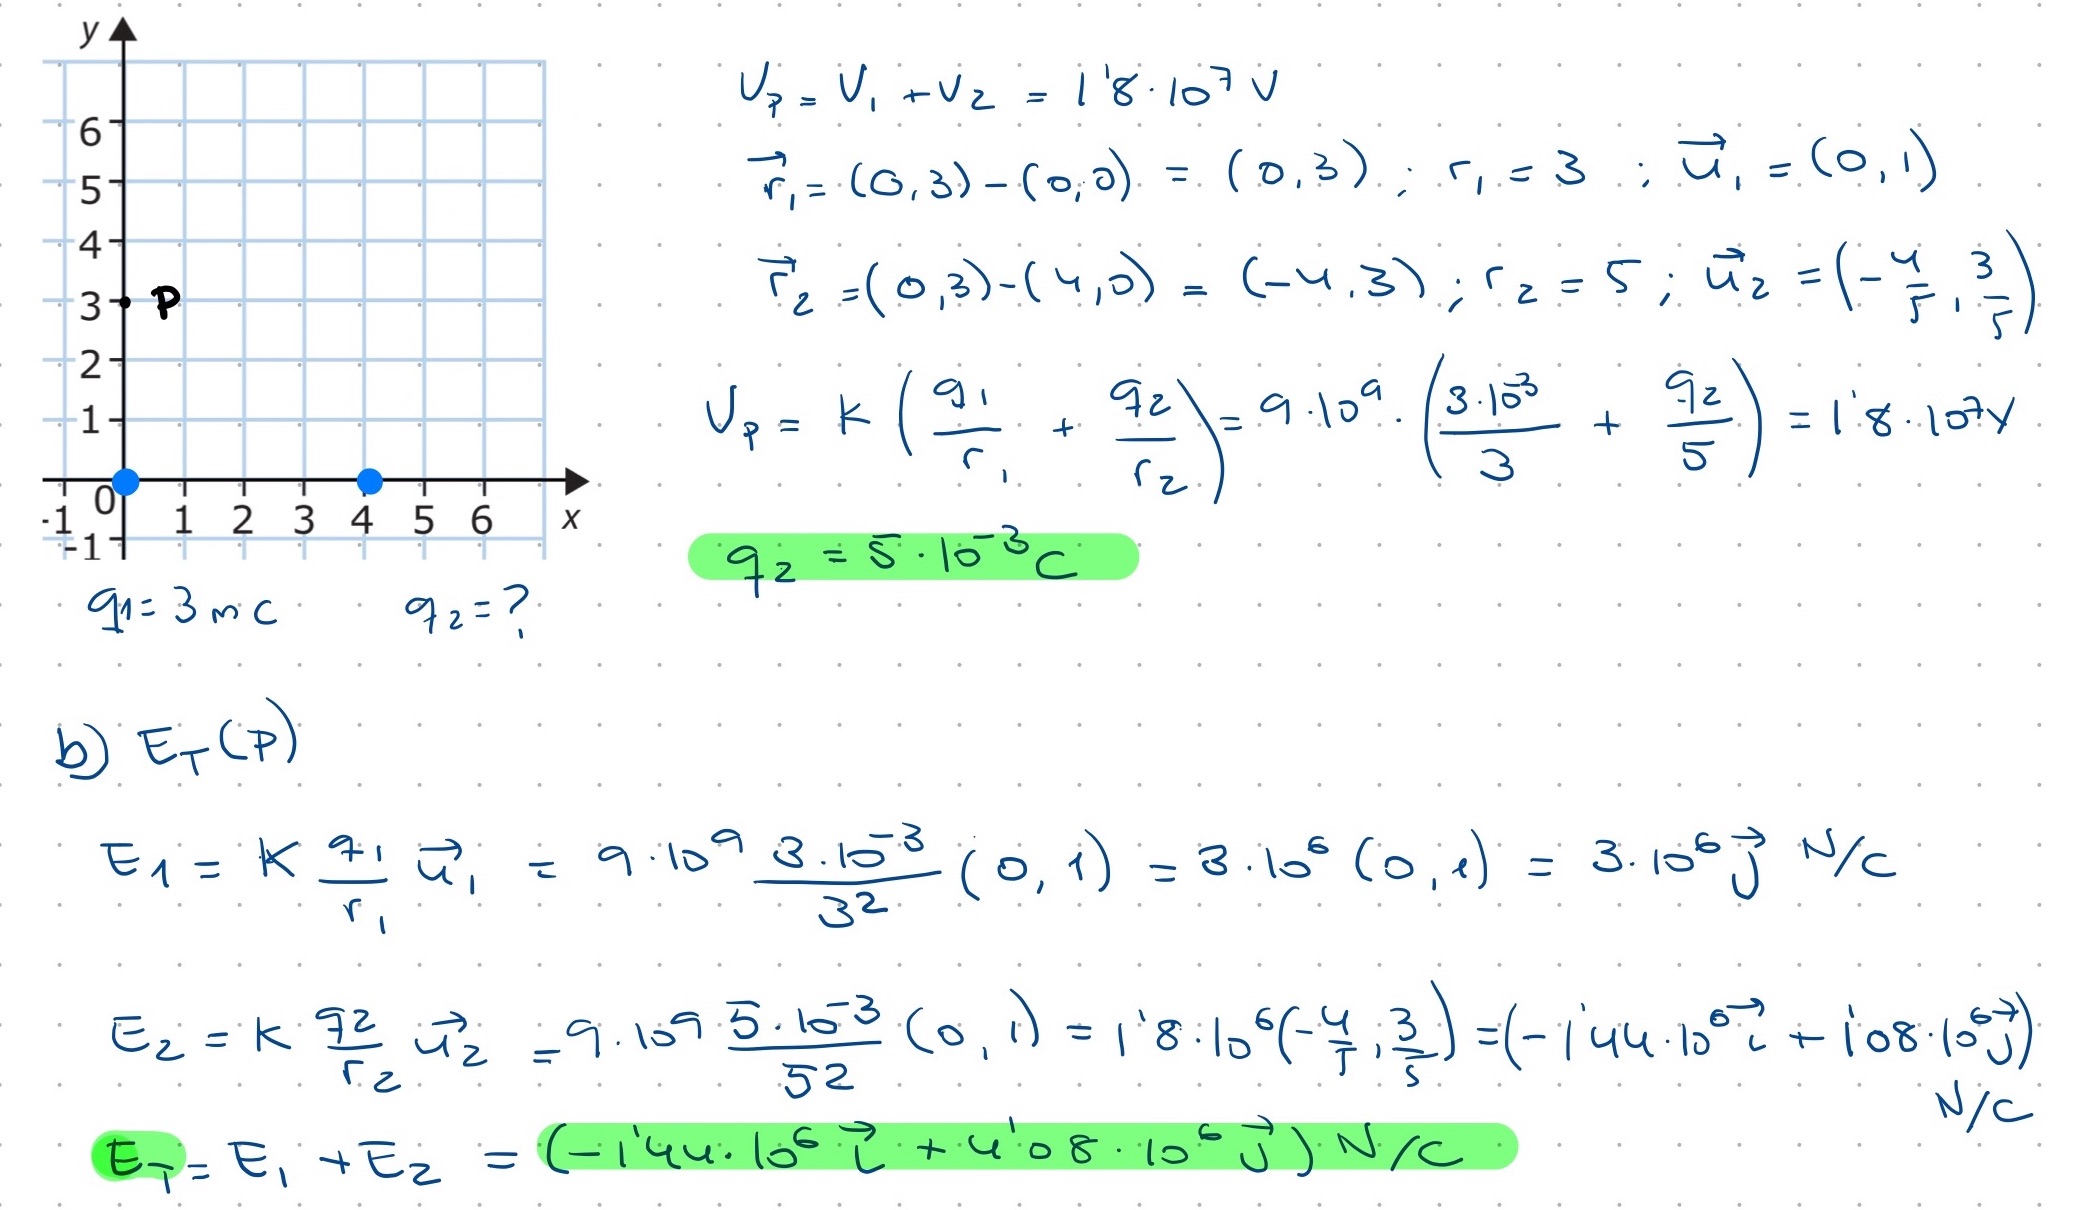 y
6
5
4
3 P
2
1
0
-1 1 2 3 4 5 6 x
-1
q1 = 3 mC q2 = ?
Vp = V1 + V2 = 1'8·10⁷ V
r⃗1 = (0,3) - (0,0) = (0,3) ; r1 = 3 ; u⃗1 = (0,1)
r⃗2 = (0,3) - (4,0) = (-4,3) ; r2 = 5 ; u⃗2 = (-4/5, 3/5)
Vp = K (q1/r1 + q2/r2) = 9·10⁹·(3·10⁻³/3 + q2/5) = 1'8·10⁷ V
q2 = 5·10⁻³ C
b) ET(P)
E1 = K q1/r1 u⃗1 = 9·10⁹ 3·10⁻³/3² (0,1) = 3·10⁶ (0,1) = 3·10⁶ j⃗ N/C
E2 = K q2/r2 u⃗2 = 9·10⁹ 5·10⁻³/52 (0,1) = 1'8·10⁶ (-4/5, 3/5) = (-1'44·10⁶ i⃗ + 1'08·10⁶ j⃗)
N/C
ET = E1 + E2 = (-1'44·10⁶ i⃗ + 4'08·10⁶ j⃗) N/C